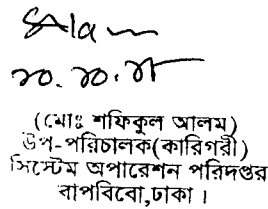 Alam
১০.১০.১৮
(মোঃ শফিকুল আলম)
উপ-পরিচালক(কারিগরী)
সিস্টেম অপারেশন পরিদপ্তর
বাপবিবো,ঢাকা।